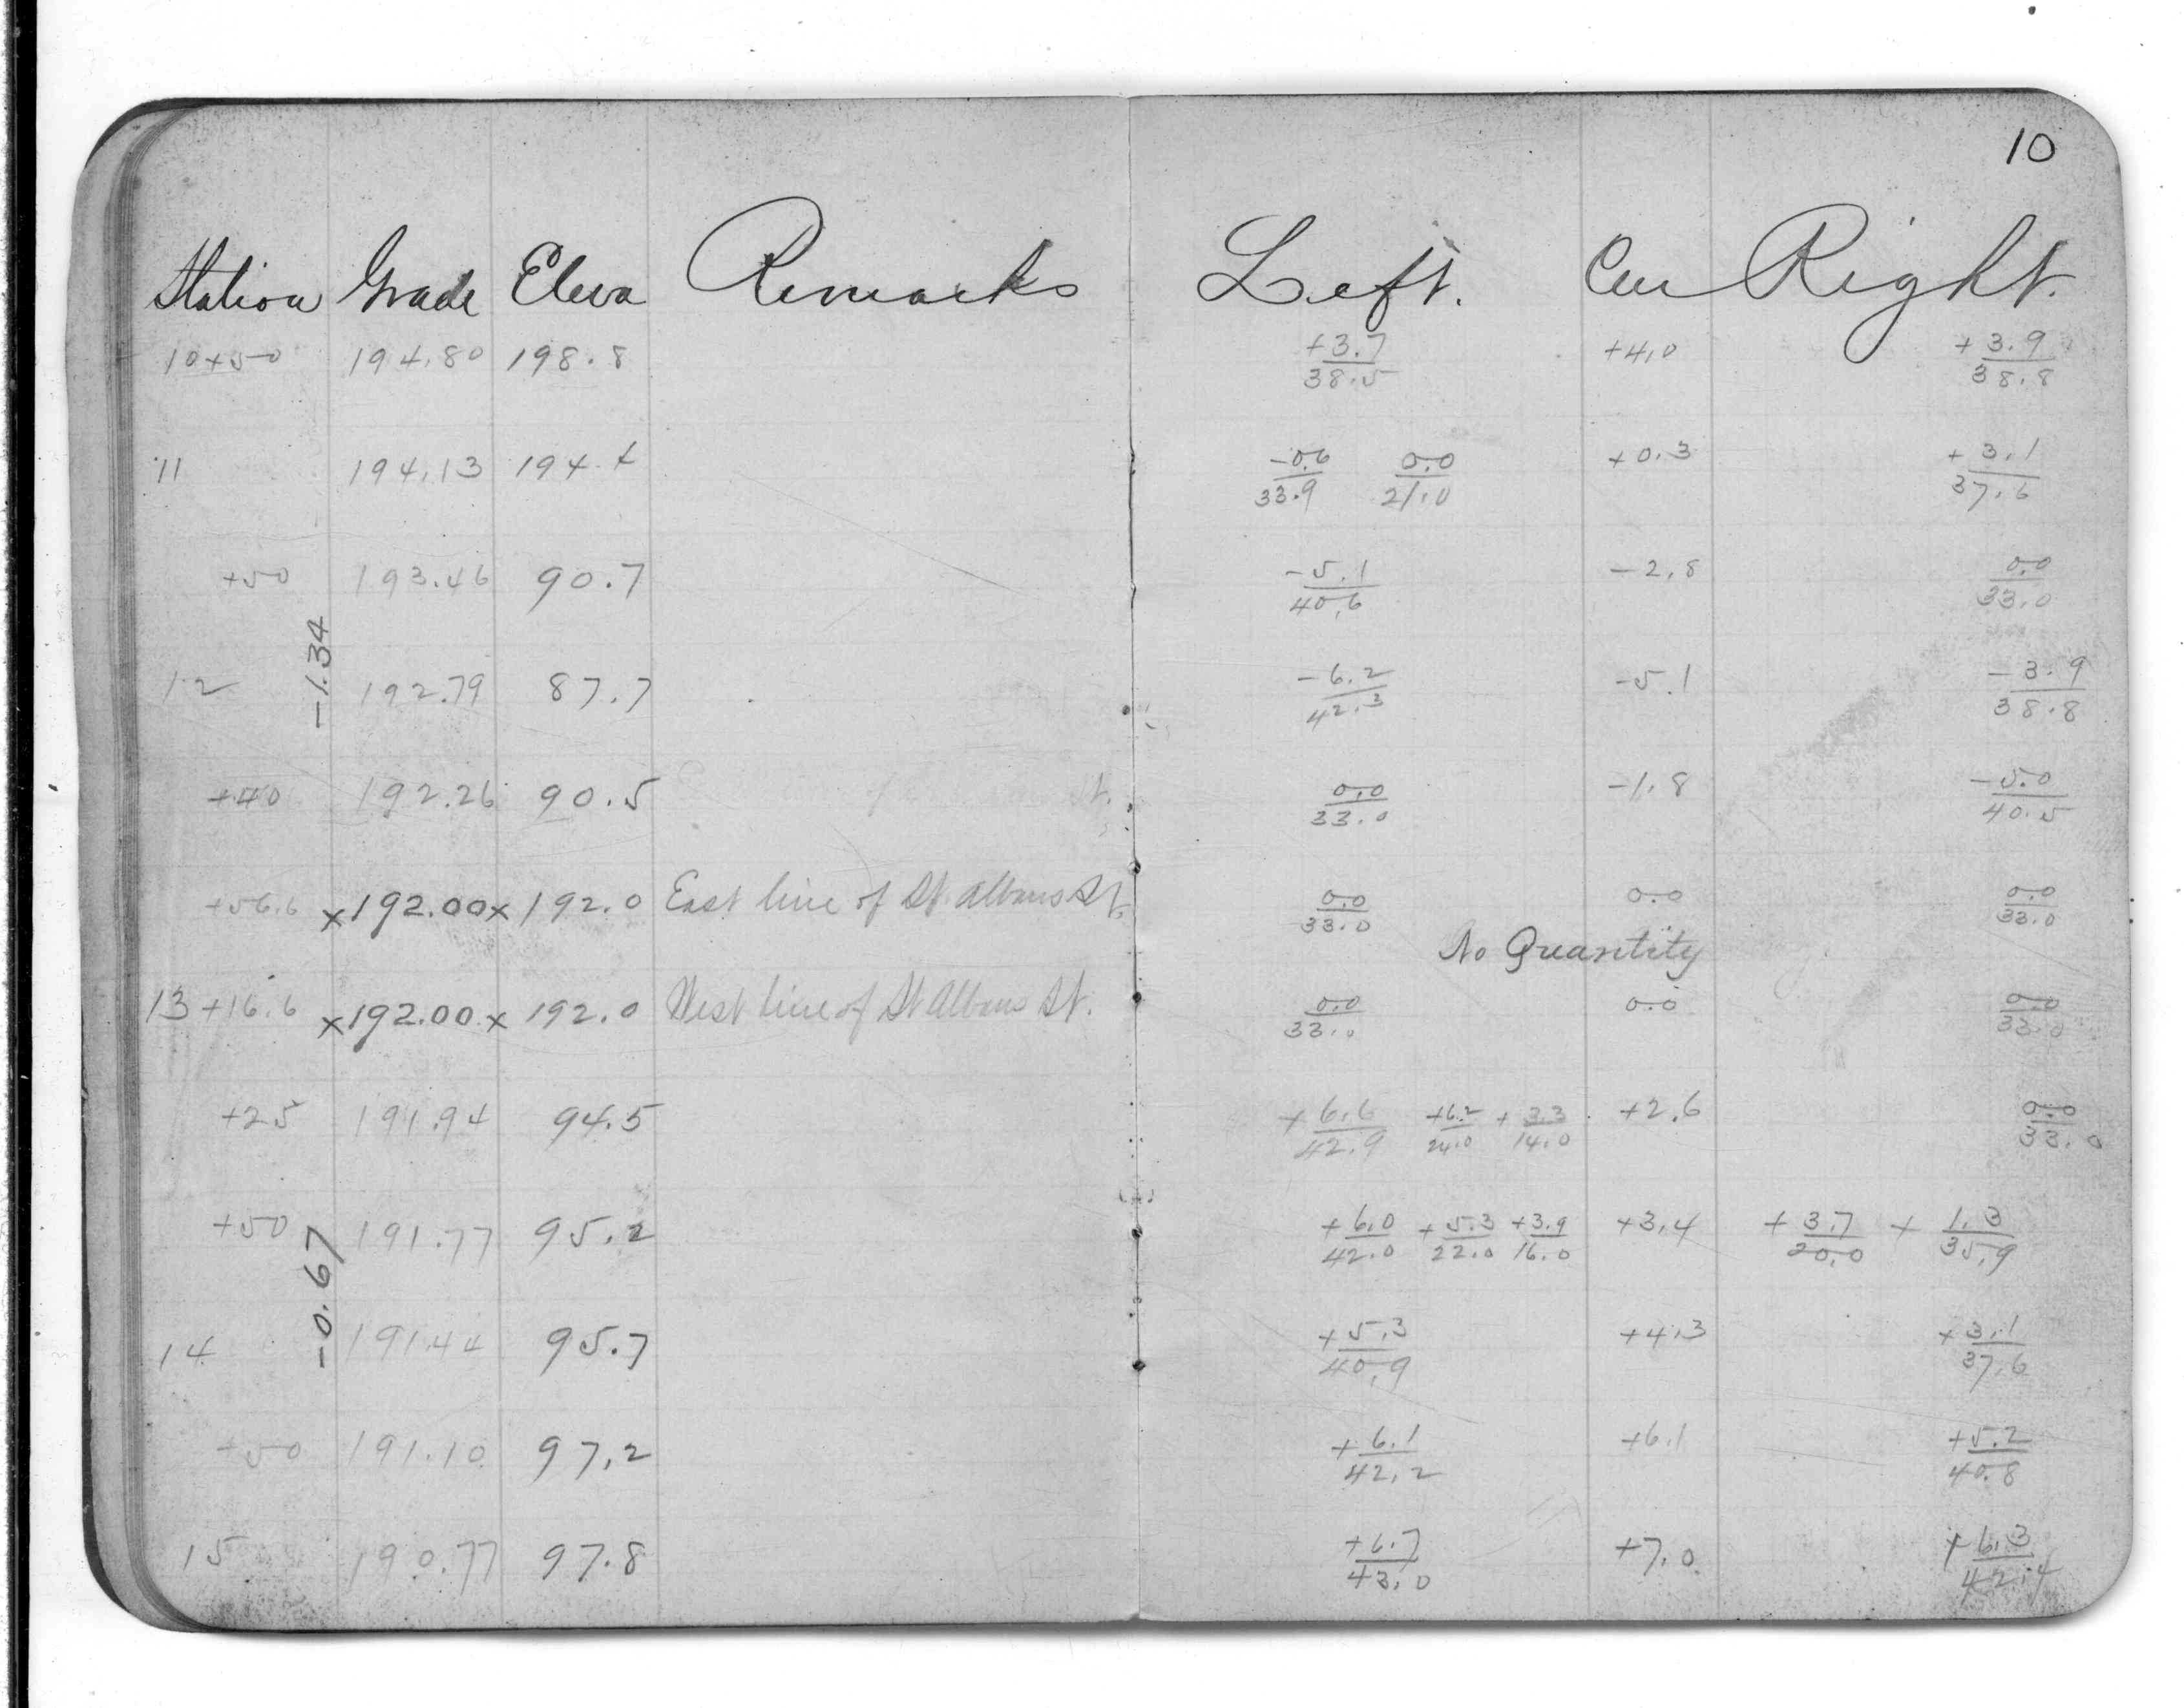 10
Station Grade Eleva Remarks Left. Cen Right.
10+50 194.80 198.8 +3.7/38.5 +4.0 +3.9/38.8
11 194.13 194.4 -0.6/33.9 0.0/21.0 +0.3 +3.1/37.6
+50 193.46 90.7 -5.1/40.6 -2.8 0.0/33.0
-1.34
12 192.79 87.7 -6.2/42.3 -5.1 -3.9/38.8
+40 192.26 90.5 0.0/33.0 -1.8 -5.0/40.5
+56.6 x192.00x 192.0 East line of St. Albans St. 0.0/33.0 0.0 0.0/33.0
No Quantity
13+16.6 x192.00x 192.0 West line of St Albans St. 0.0/33.0 0.0 0.0/33.0
+25 191.94 94.5 +6.6/42.9 +6.2/24.0 +3.3/14.0 +2.6 0.0/33.0
+50 191.77 95.2 +6.0/42.0 +5.3/22.0 +3.9/16.0 +3.4 +3.7/20.0 +1.3/35.9
-0.67
14 191.44 95.7 +5.3/40.9 +4.3 +3.1/37.6
+50 191.10 97.2 +6.1/42.2 +6.1 +5.2/40.8
15 190.77 97.8 +6.7/43.0 +7.0 +6.3/42.4